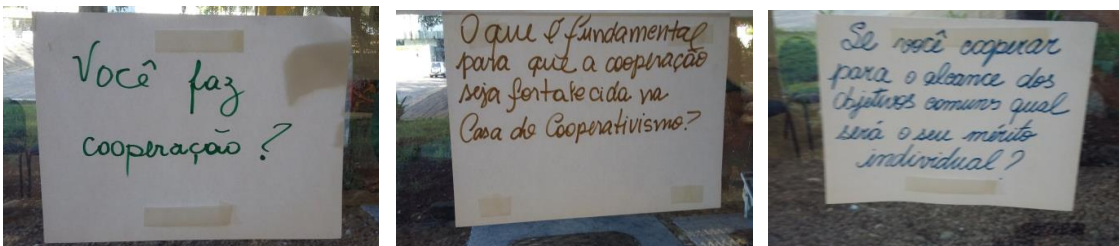 Você faz
cooperação?
O que é fundamental
para que a cooperação
seja fortalecida na
Casa do Cooperativismo?
Se você cooperar
para o alcance dos
objetivos comuns qual
será o seu mérito
individual?